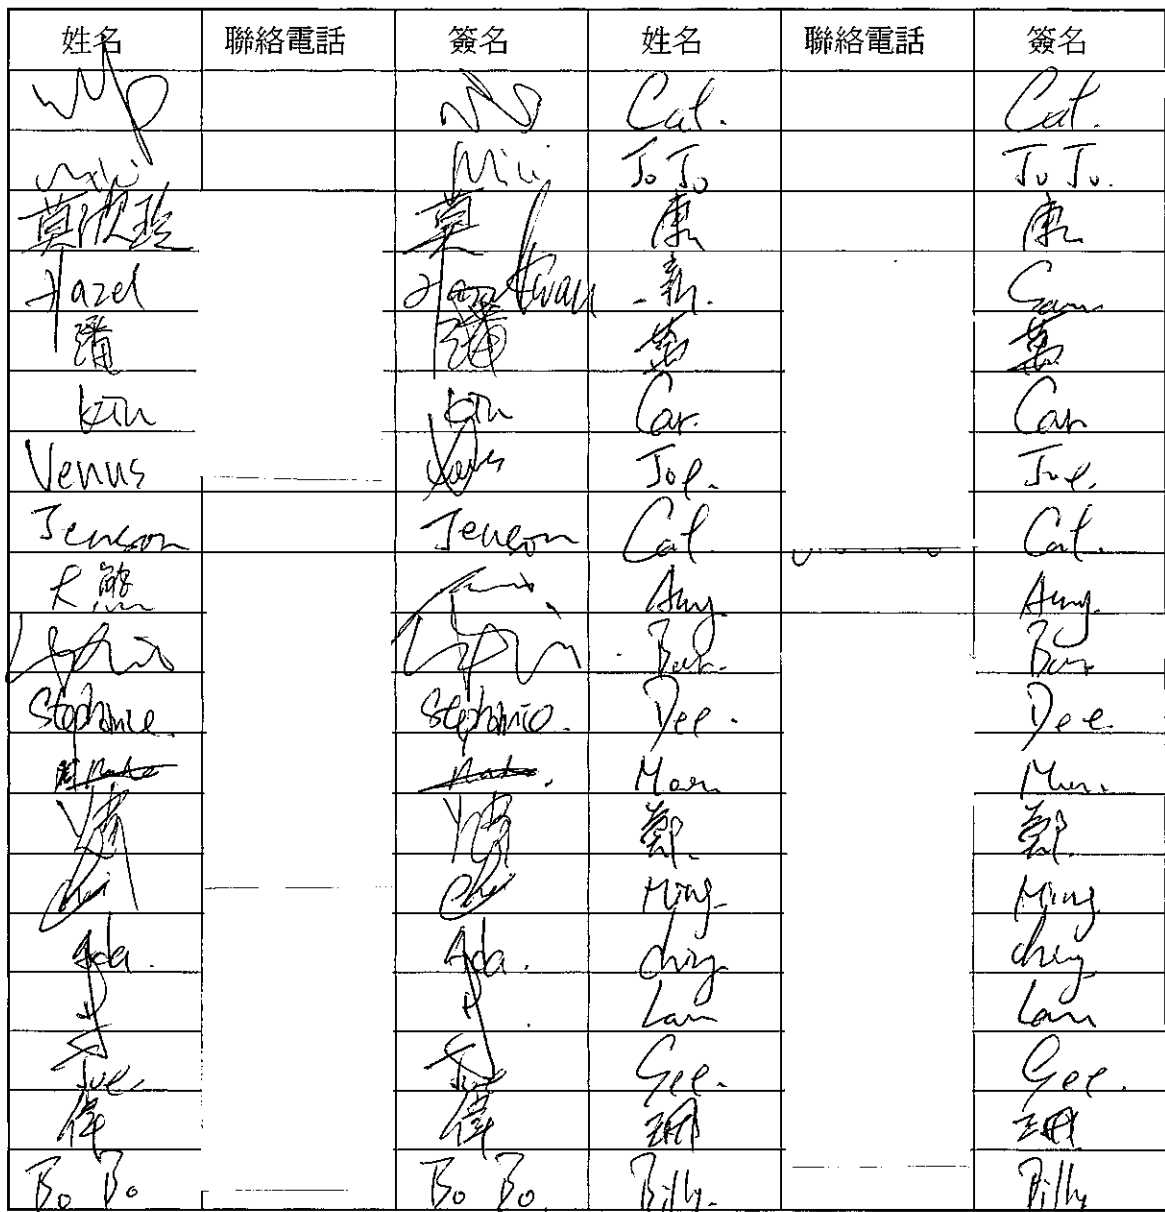 姓名 聯絡電話 簽名 姓名 聯絡電話 簽名
Cat. Cat.
Mili Jo Jo Jo Jo.
莫欣珍 莫 康 康
Hazel Kwan 新. Sam
黃 黃
Kin Kin Car. Car
Venus Joe. Joe.
Jenson Jenson Cat. Cat.
大熊 Amy. Amy.
Ben. Ben
Stephanie. Stephanie. Dee. Dee
Man Man.
鄭. 鄭.
Chi Chi Ming. Ming.
Ada. Ada. Ching. Ching.
Lam Lam
Joe Gee. Gee.
偉 偉 珊 珊
Bo Bo Bo Bo. Billy. Billy